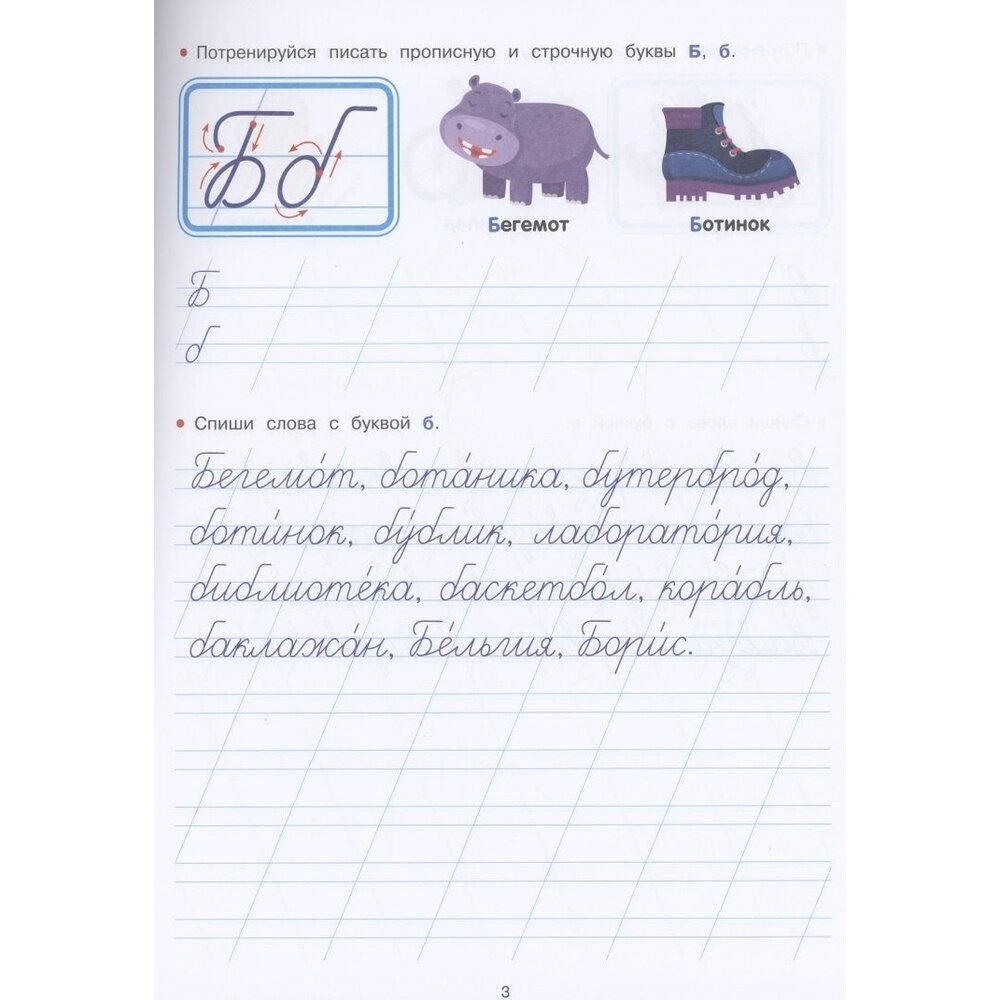 • Потренируйся писать прописную и строчную буквы Б, б.
Б б
Бегемот
Ботинок
Б
б
• Спиши слова с буквой б.
Бегемо́т, бота́ника, бутербро́д,
боти́нок, бу́блик, лаборато́рия,
библиоте́ка, баскетбо́л, кора́бль,
баклажа́н, Бе́льгия, Бори́с.
3